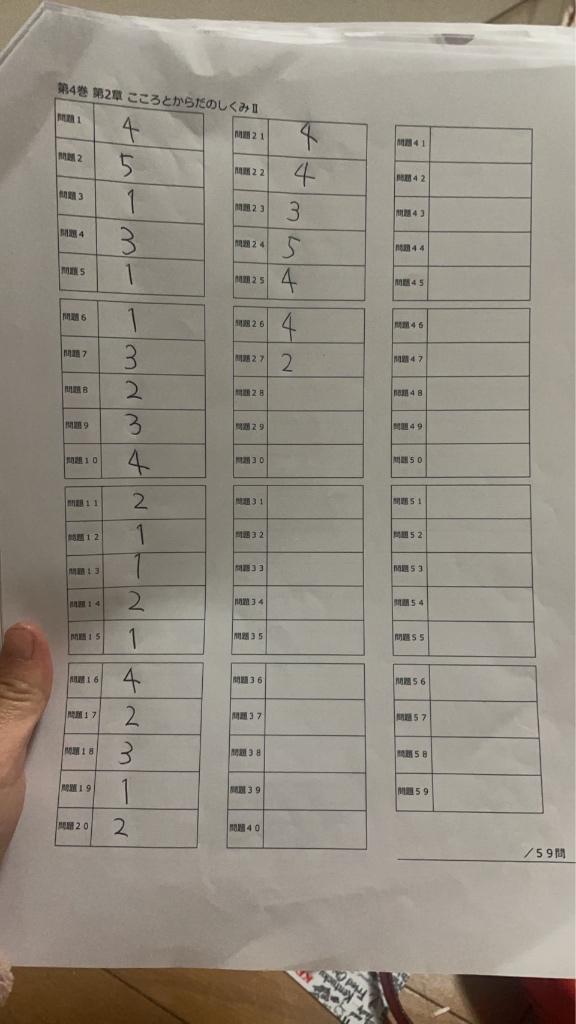 第4巻 第2章 こころとからだのしくみⅡ
問題1 4
問題2 5
問題3 1
問題4 3
問題5 1
問題6 1
問題7 3
問題8 2
問題9 3
問題10 4
問題11 2
問題12 1
問題13 1
問題14 2
問題15 1
問題16 4
問題17 2
問題18 3
問題19 1
問題20 2
問題21 4
問題22 4
問題23 3
問題24 5
問題25 4
問題26 4
問題27 2
問題28
問題29
問題30
問題31
問題32
問題33
問題34
問題35
問題36
問題37
問題38
問題39
問題40
問題41
問題42
問題43
問題44
問題45
問題46
問題47
問題48
問題49
問題50
問題51
問題52
問題53
問題54
問題55
問題56
問題57
問題58
問題59
/59問